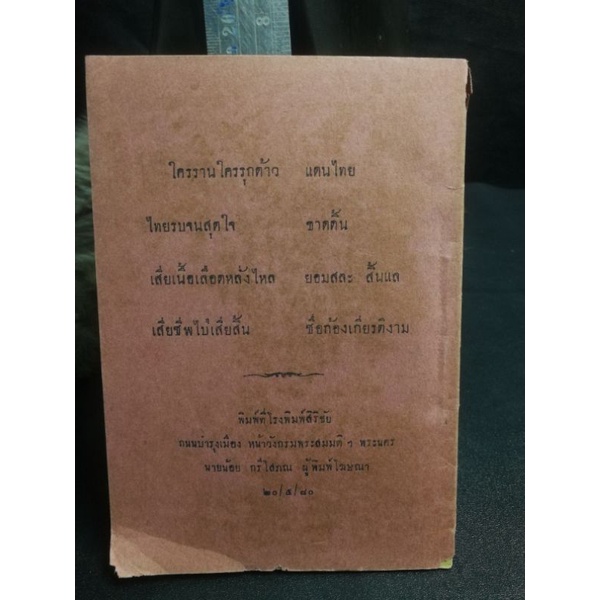 20
8
ใครรานใครรุกด้าว แดนไทย
ไทยรบจนสุดใจ ขาดดิ้น
เสียเนื้อเลือดหลั่งไหล ยอมสละ สิ้นแล
เสียชีพไป่เสียสิ้น ชื่อก้องเกียรติงาม
พิมพ์ที่โรงพิมพ์สิริชัย
ถนนบำรุงเมือง หน้าวังกรมพระสมมติ ๆ พระนคร
นายน้อย ผู้พิมพ์โฆษณา
๒๐/๕/๘๐